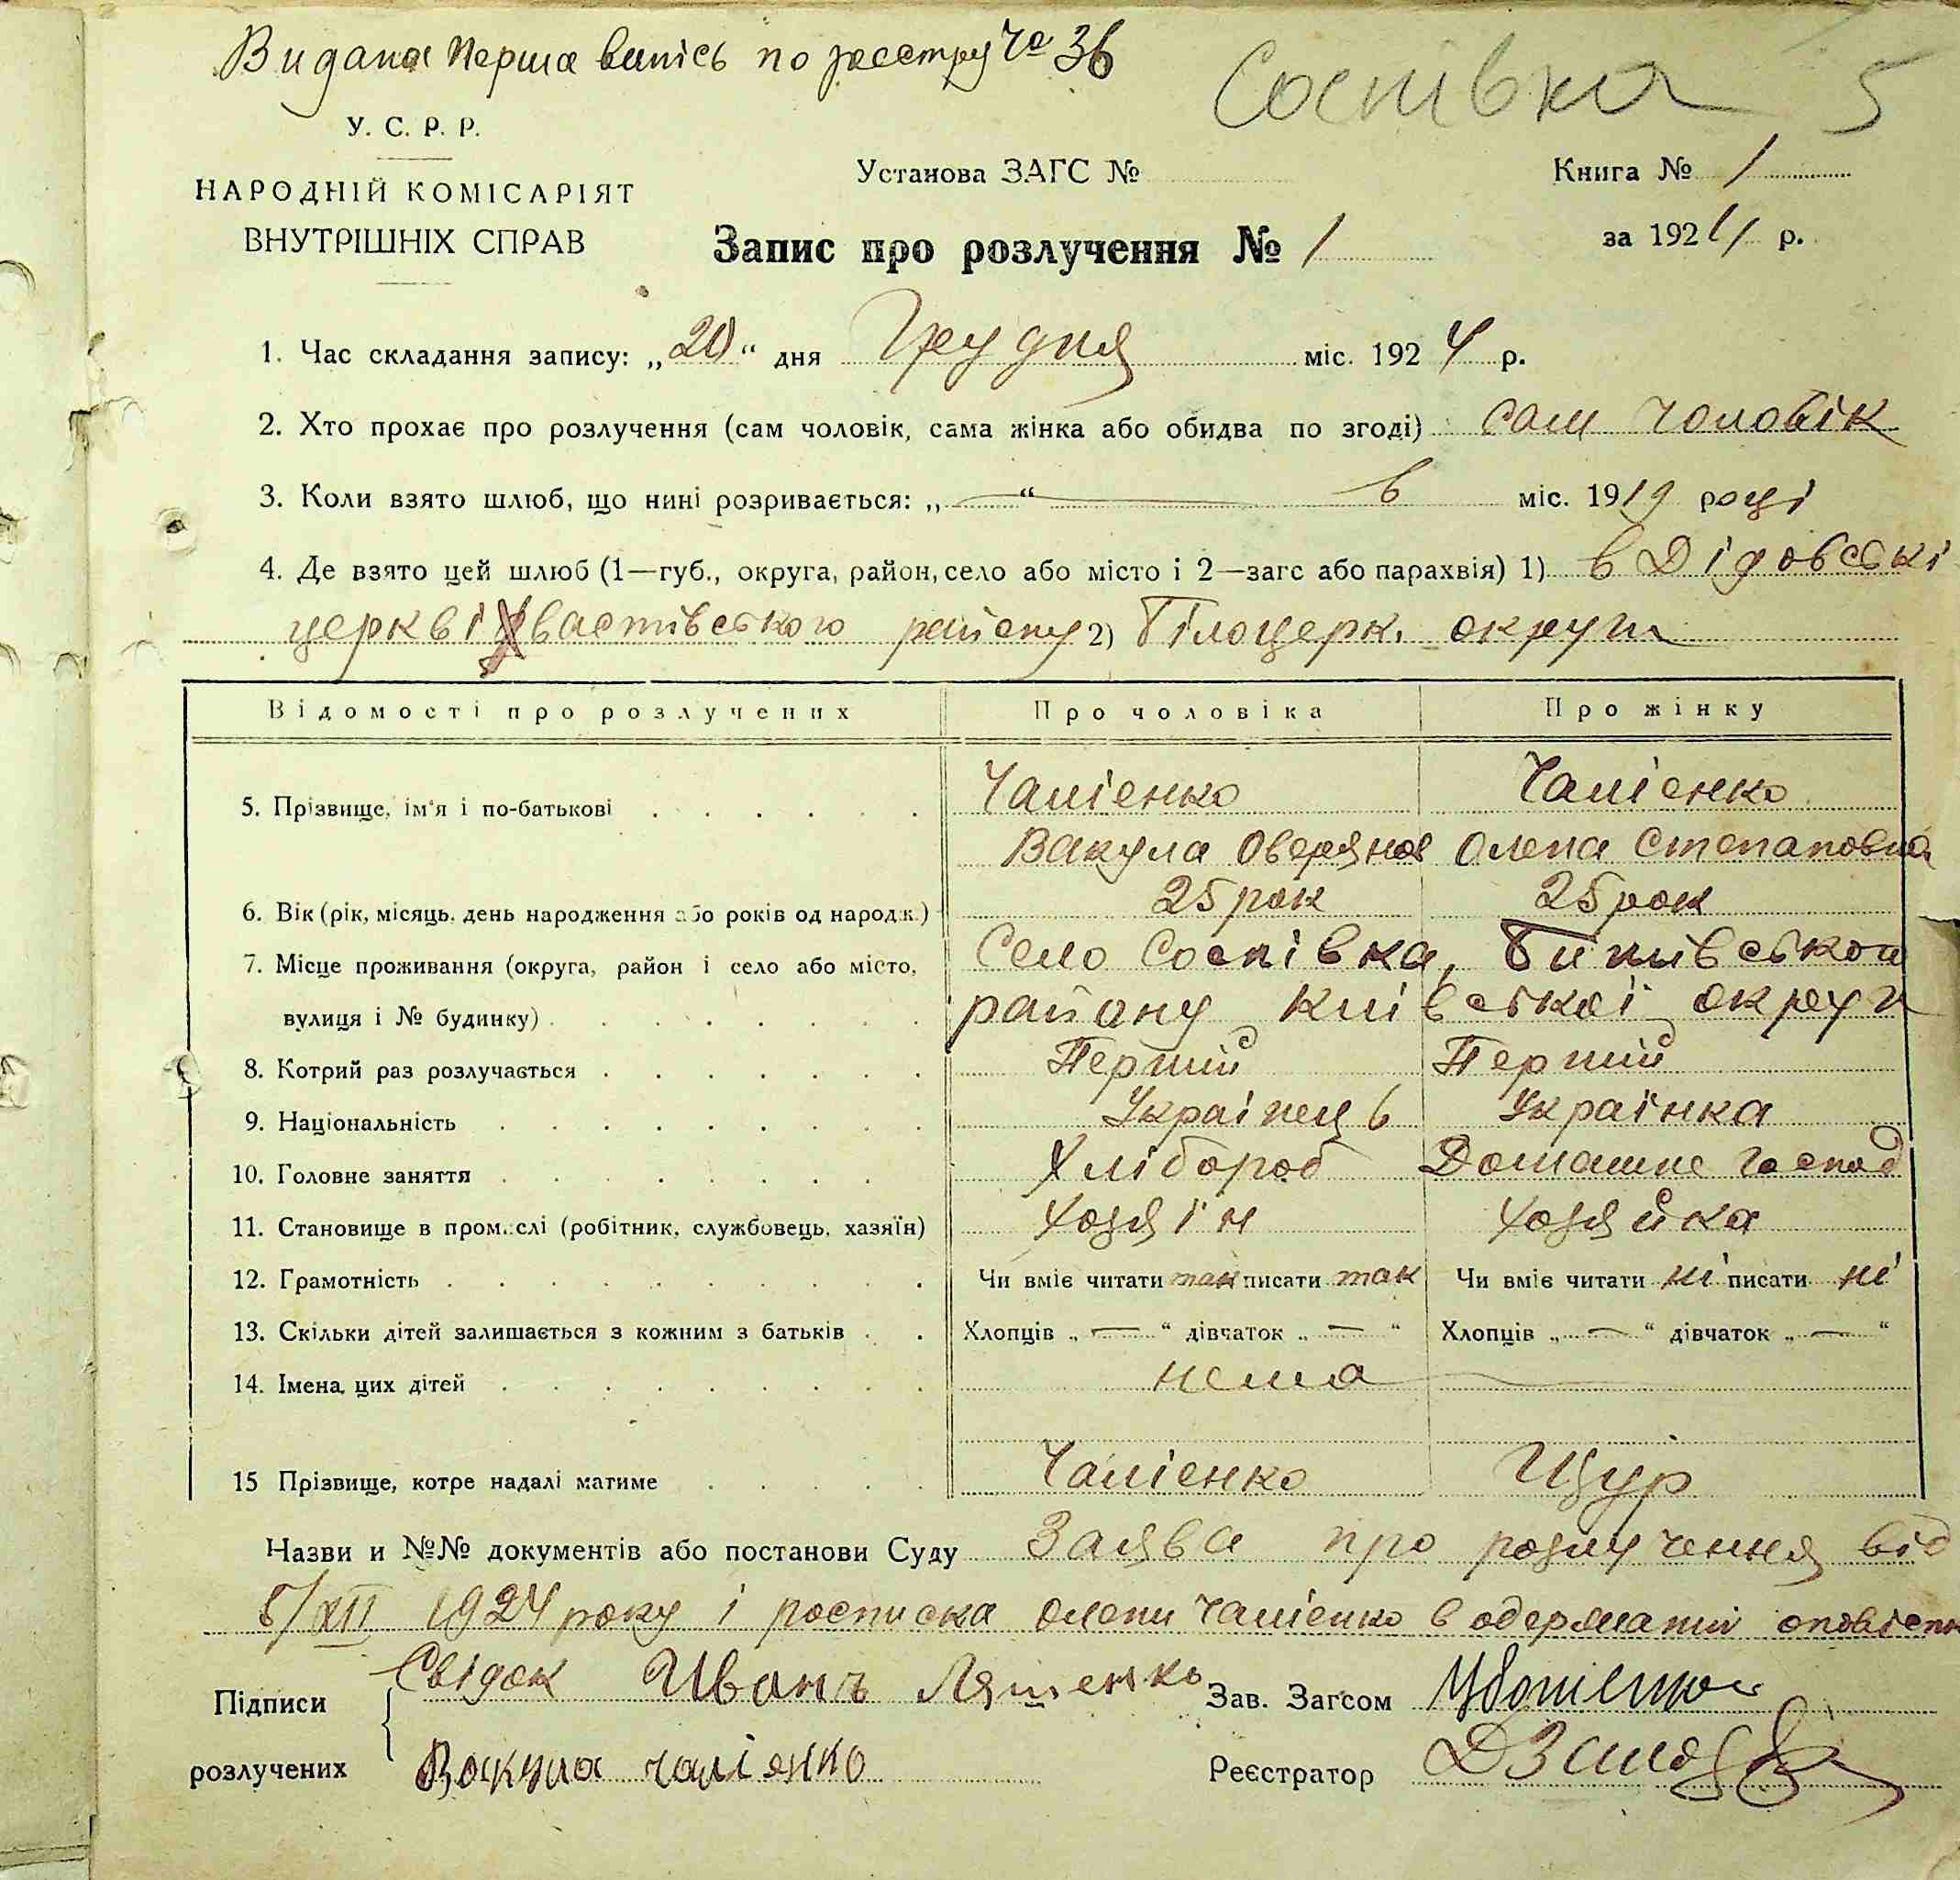 Видана перша випісь по реєстру Чо 36
Соснівка 5
У. С. Р. Р.
НАРОДНІЙ КОМІСАРІЯТ
ВНУТРІШНІХ СПРАВ
Установа ЗАГС №
Книга № 1
за 1924 р.
Запис про розлучення № 1
1. Час складання запису: „20“ дня Грудня міс. 1924 р.
2. Хто прохає про розлучення (сам чоловік, сама жінка або обидва по згоді) сам чоловік
3. Коли взято шлюб, що нині розривається: „—“ — в міс. 1919 році
4. Де взято цей шлюб (1—губ., округа, район, село або місто і 2—загс або парахвія) 1) в Дідовські
церкві Хвастівського району 2) Білоцерк. округи
Відомості про розлучених Про чоловіка Про жінку
5. Прізвище, ім'я і по-батькові Чалієнко Чалієнко
Вакула Оверянов Олена Степановна
6. Вік (рік, місяць, день народження або років од народж.) 25 рок 25 рок
7. Місце проживання (округа, район і село або місто, Село Соснівка,
вулиця і № будинку) району Київської округи
8. Котрий раз розлучається Перший Перший
9. Національність Українець Українка
10. Головне заняття Хлібороб Домашнє господ
11. Становище в промислі (робітник, службовець, хазяїн) Хозяїн Хозяйка
12. Грамотність Чи вміє читати так писати так Чи вміє читати ні писати ні
13. Скільки дітей залишається з кожним з батьків Хлопців „—“ дівчаток „—“ Хлопців „—“ дівчаток „—“
14. Імена цих дітей нема
15 Прізвище, котре надалі матиме Чалієнко Щур
Назви и №№ документів або постанови Суду Заява про розлучення від
8/XII 1924 року і росписка Олени Чалієнко в одержанні
Підписи Свідок Иванъ Ляшенко Зав. Загсом
розлучених Вакула чалієнко Реєстратор